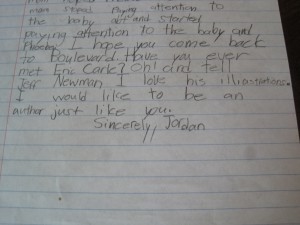 mom stoped paying attention to
the baby and started
paying attention to the baby and
Phoebe. I hope you come back
to Boulevard. Have you ever
met Eric Carle? Oh! and tell
Jeff Newman I love his illistrations.
I would like to be an
author just like you.
Sincerely, Jordan